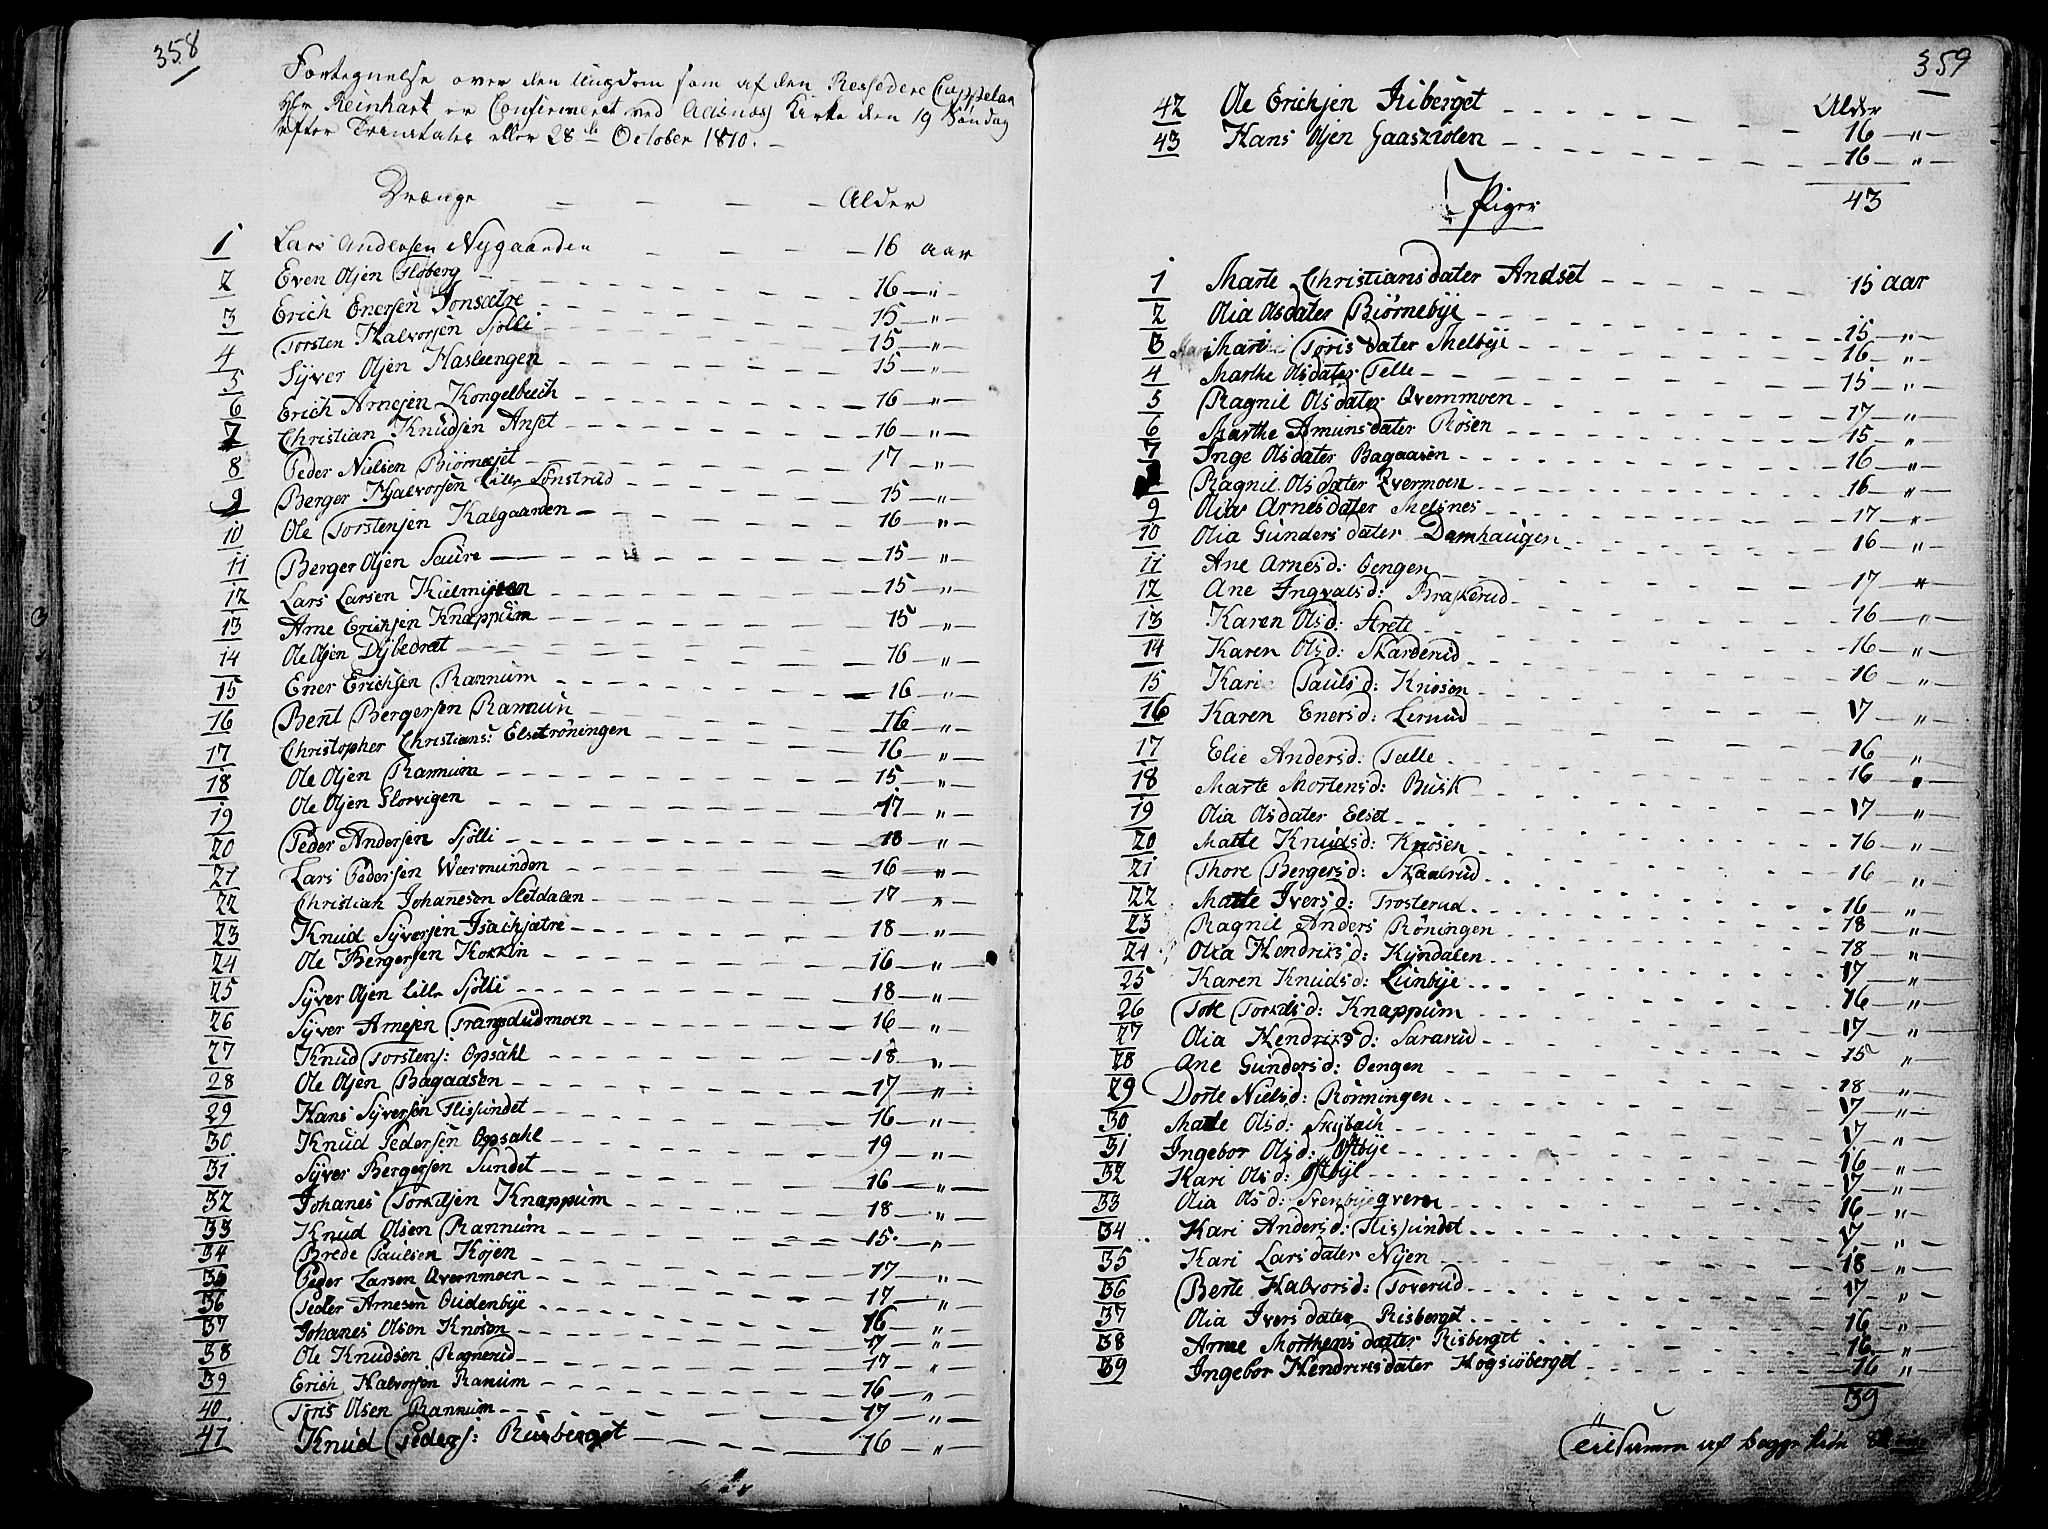 358
Fortegnelse over den Ungdom som af den Residere Cappelan
Hr Reinhart er Confirmeret ved Aasnæs Kirke den 19 Søndag
efter Trinitatis eller 28de October 1810. -
Drænge - - - - Alder
1 Lars Andersen Nygaarden - - - 16 aar
2 Even Olsen Floberg - 16 - " -
3 Erich Enersen Jonsætre - 15 - " -
4 Torsten Halvorsen Sjølli - 15 - " -
5 Syver Olsen Hasleengen - 15 - " -
6 Erich Arnesen Kongelbech - 16 - " -
7 Christian Knudsen Anset - 16 - " -
8 Peder Nielsen Biørneset - 17 - " -
9 Berger Halvorsen Lille Sønstrud - 15 - " -
10 Ole Torstensen Kalgaarden - 16 - " -
11 Berger Olsen Saure - 15 - " -
12 Lars Larsen Kielmyren - 15 - " -
13 Arne Erichsen Knappum - 15 - " -
14 Ole Olsen Dybedræt - 16 - " -
15 Ener Erichsen Rannum - 16 - " -
16 Bent Bergersen Rannum - 16 - " -
17 Christopher Christians: Elsetrøningen - 16 - " -
18 Ole Olsen Rannum - 15 - " -
19 Ole Olsen Glorvigen - 17 - " -
20 Peder Andersen Sjølli - 18 - " -
21 Lars Pedersen Weermunden - 16 - " -
22 Christian Johannesen Sletdalen - 17 - " -
23 Knud Syversen Isachsætre - 18 - " -
24 Ole Bergersen Kokkin - 16 - " -
25 Syver Olsen Lille Sjølli - 18 - " -
26 Syver Arnesen - 16 - " -
27 Knud Torstens: Opsahl - 18 - " -
28 Ole Olsen Bagaasen - 17 - " -
29 Hans Syversen Flisundet - 16 - " -
30 Knud Pedersen Opsahl - 19 - " -
31 Syver Bergersen Sundet - 16 - " -
32 Johanes Torkilsen Knappum - 18 - " -
33 Knud Olsen Rannum - 15 - " -
34 Brede Paulsen Kojen - 17 - " -
35 Peder Larsen Qvernmoen - 17 - " -
36 Peder Arnesen Oudenbye - 16 - " -
37 Johanes Olsen Knosen - 17 - " -
38 Ole Knudsen Rognerud - 17 - " -
39 Erich Halvorsen Ranum - 16 - " -
40 Toris Olsen Rannum - 17 - " -
41 Knud Peders: Riisberget - 16 - " -
359
Alder
42 Ole Erichsen Riberget - 16 - " -
43 Hans Olsen Gaaskiølen - 16 - " -
43
Piger
1 Marte Christiansdater Andset - 15 aar
2 Olia Olsdater Biørnebye - 15 - " -
3 Mari Torisdater Melbye - 16 - " -
4 Marthe Olsdater Telle - 15 - " -
5 Ragnil Olsdater Qvernmoen - 17 - " -
6 Marthe Amunsdater Rosen - 15 - " -
7 Inge Olsdater Bagaasen - 16 - " -
Ragnil Olsdater Qvermoen - 16 - " -
9 Olia Arnesdater Melsnes - 17 - " -
10 Olia Gundersdater Damhaugen - 16 - " -
11 Ane Arnesd: Oengen - 17 - " -
12 Ane Ingvalsd: Braskerud - 16 - " -
13 Karen Olsd: Strete - 16 - " -
14 Karen Olsd: Skarderud - 16 - " -
15 Kari Paulsd: Kniosen - 17 - " -
16 Karen Enersd: Lerud - 16 - " -
17 Elie Andersd: Tælle - 16 - " -
18 Marte Mortensd: Busk - 17 - " -
19 Olia Olsdater Elset - 16 - " -
20 Matte Knudsd: Knøsen - 16 - " -
21 Thore Bergersd: Skaalrud - 16 - " -
22 Matte Iversd: Trosterud - 18 - " -
23 Ragnil Anders Røningen - 18 - " -
24 Olia Hendriksd: Kyndalen - 17 - " -
25 Karen Knudsd: Lunbye - 16 - " -
26 Torkildsd: Knappum - 17 - " -
27 Olia Hendriksd: Sararud - 15 "
28 Ane Gundersd: Oengen - 18 - " -
29 Dorte Nielsd: Rønningen - 17 - " -
30 Matte Olsd: Skybach - 17 - " -
31 Ingebor Olsd: Østbye - 16 - " -
32 Kari Olsd: Østbye - 17 - " -
33 Olia Olsd: Svenbyeqvern - 16 - " -
34 Kari Andersd: Flissundet - 17 - " -
35 Kari Larsdater Nyen - 18 - " -
36 Berte Halvorsd: Toverud - 17 - " -
37 Olia Iversdater Risberget - 16 - " -
38 Arne Morthensdater Risberget - 16 - " -
39 Ingebor Hendriksdater Kogsiøberget - 16 "
39
Teilsumm af begge Kiøn 82